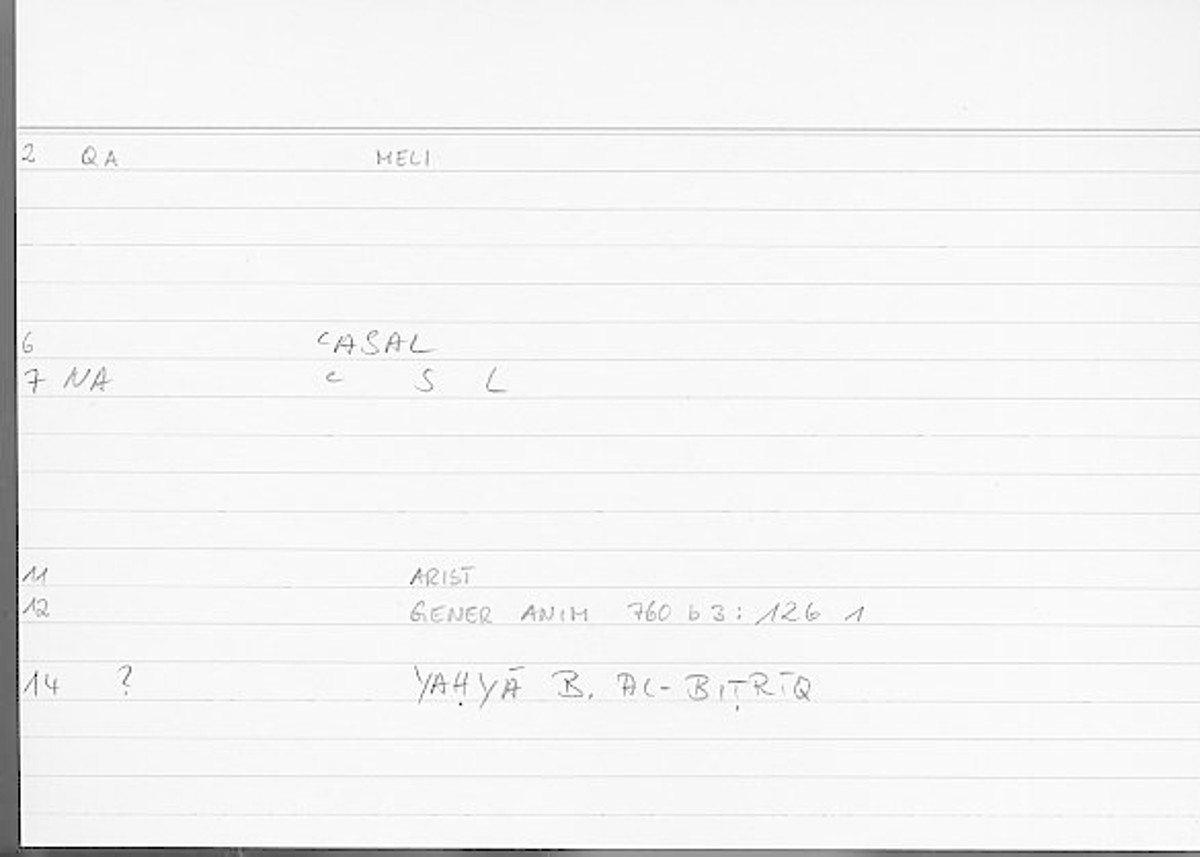 2 QA MELI
6 ʿASAL
7 NA ʿ S L
11 ARIST
12 GENER ANIM 760 b 3 : 126 1
14 ? YAḤYĀ B. AL-BIṬRĪQ